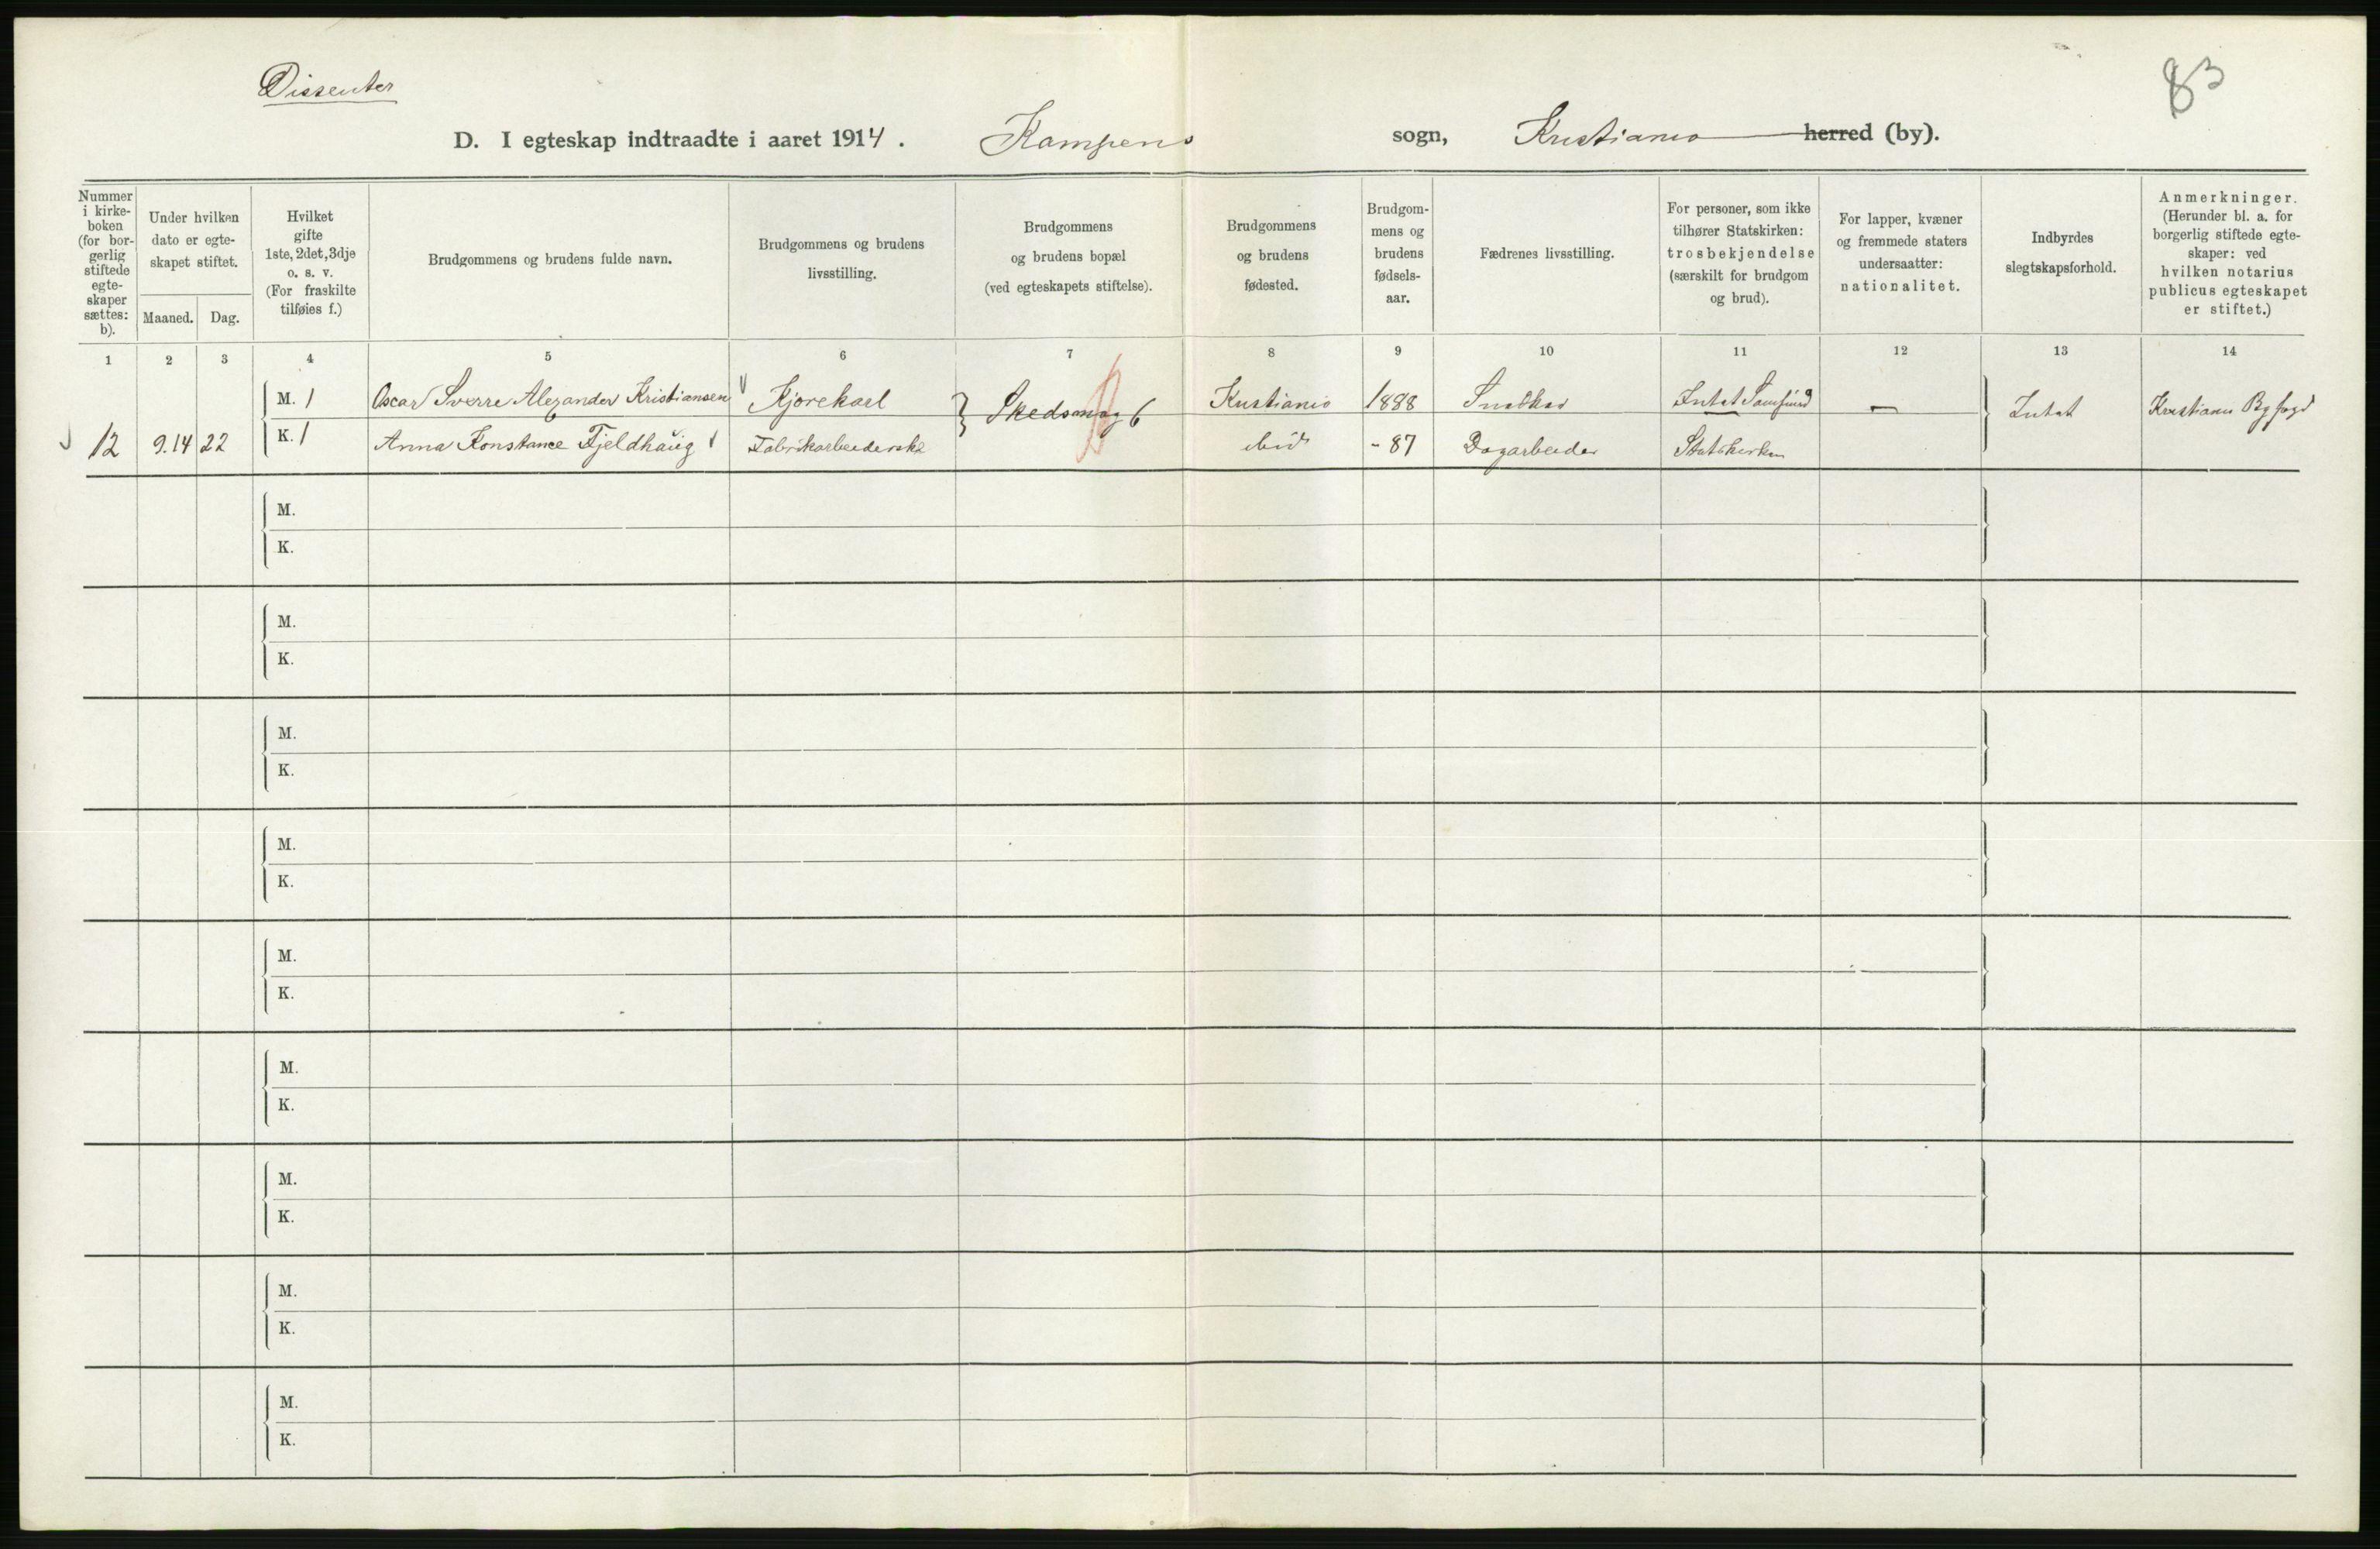 Dissenter
83
D. I egteskap indtraadte i aaret 1914. Kampens sogn, Kristiania herred (by).
Nummer i kirke-boken (for bor-gerlig stiftede egte-skaper sættes: b).
Under hvilken dato er egte-skapet stiftet.
Maaned. Dag.
Hvilket gifte 1ste, 2det, 3dje o. s. v. (For fraskilte tilføies f.)
Brudgommens og brudens fulde navn.
Brudgommens og brudens livsstilling.
Brudgommens og brudens bopæl (ved egteskapets stiftelse).
Brudgommens og brudens fødested.
Brudgom-mens og brudens fødsels-aar.
Fædrenes livsstilling.
For personer, som ikke tilhører Statskirken: trosbekjendelse (særskilt for brudgom og brud).
For lapper, kvæner og fremmede staters undersaatter: nationalitet.
Indbyrdes slegtskapsforhold.
Anmerkninger. (Herunder bl. a. for borgerlig stiftede egte-skaper: ved hvilken notarius publicus egteskapet er stiftet.)
1 2 3 4 5 6 7 8 9 10 11 12 13 14
M. 1 Oscar Sverre Alexander Kristiansen Kjørekarl Skedsmog 6 Kristiania 1888 Snedker Intet Samfund — Intet Kristiania Byfogd
12 9.14 22 K. 1 Anna Konstance Fjeldhaug Fabrikarbeiderske ibid - 87 Dagarbeider Statskirken
M.
K.
M.
K.
M.
K.
M.
K.
M.
K.
M.
K.
M.
K.
M.
K.
M.
K.